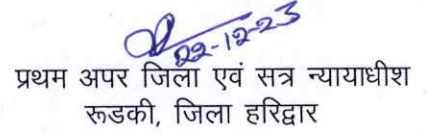 22-12-23
प्रथम अपर जिला एवं सत्र न्यायाधीश
रूडकी, जिला हरिद्वार